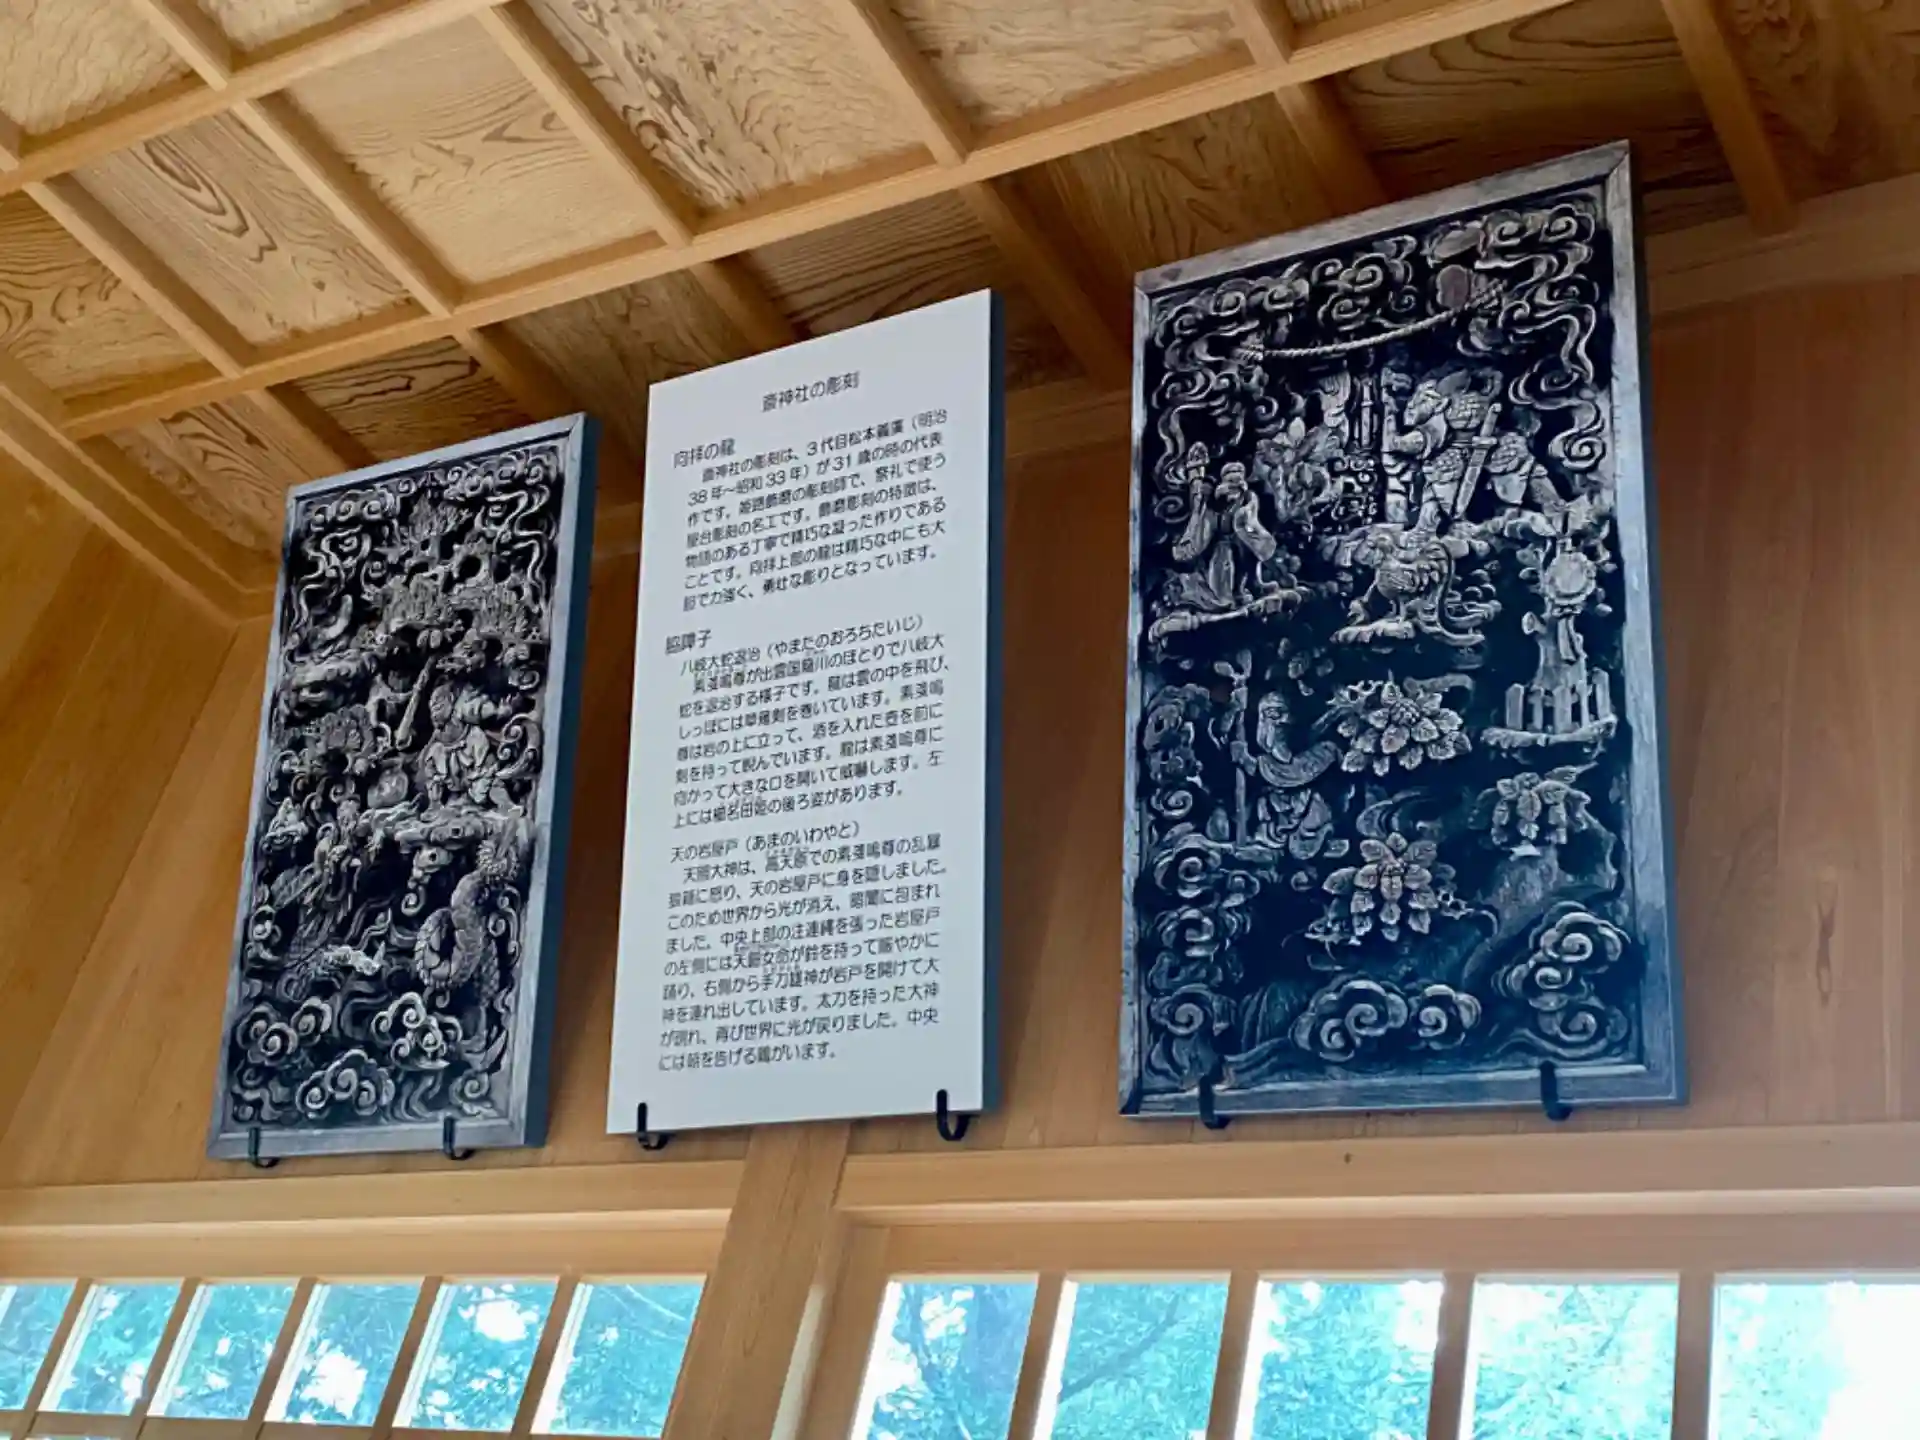 斎神社の彫刻
向拝の龍
斎神社の彫刻は、3代目松本義廣（明治
38年～昭和33年）が31歳の時の代表
作です。姫路飾磨の彫刻師で、祭礼で使う
屋台彫刻の名工です。飾磨彫刻の特徴は、
物語のある丁寧で精巧な凝った作りである
ことです。向拝上部の龍は精巧な中にも大
胆で力強く、勇壮な彫りとなっています。
脇障子
八岐大蛇退治（やまたのおろちたいじ）
素戔嗚尊が出雲国簸川のほとりで八岐大
蛇を退治する様子です。龍は雲の中を飛び、
しっぽには草薙剣を巻いています。素戔嗚
尊は岩の上に立って、酒を入れた壺を前に
剣を持って睨んでいます。龍は素戔嗚尊に
向かって大きな口を開いて威嚇します。左
上には櫛名田姫の後ろ姿があります。
天の岩屋戸（あまのいわやと）
天照大神は、高天原での素戔嗚尊の乱暴
狼藉に怒り、天の岩屋戸に身を隠しました。
このため世界から光が消え、暗闇に包まれ
ました。中央上部の注連縄を張った岩屋戸
の左側には天鈿女命が鈴を持って賑やかに
踊り、右側から手力雄神が岩戸を開けて大
神を連れ出しています。太刀を持った大神
が現れ、再び世界に光が戻りました。中央
には朝を告げる鶏がいます。